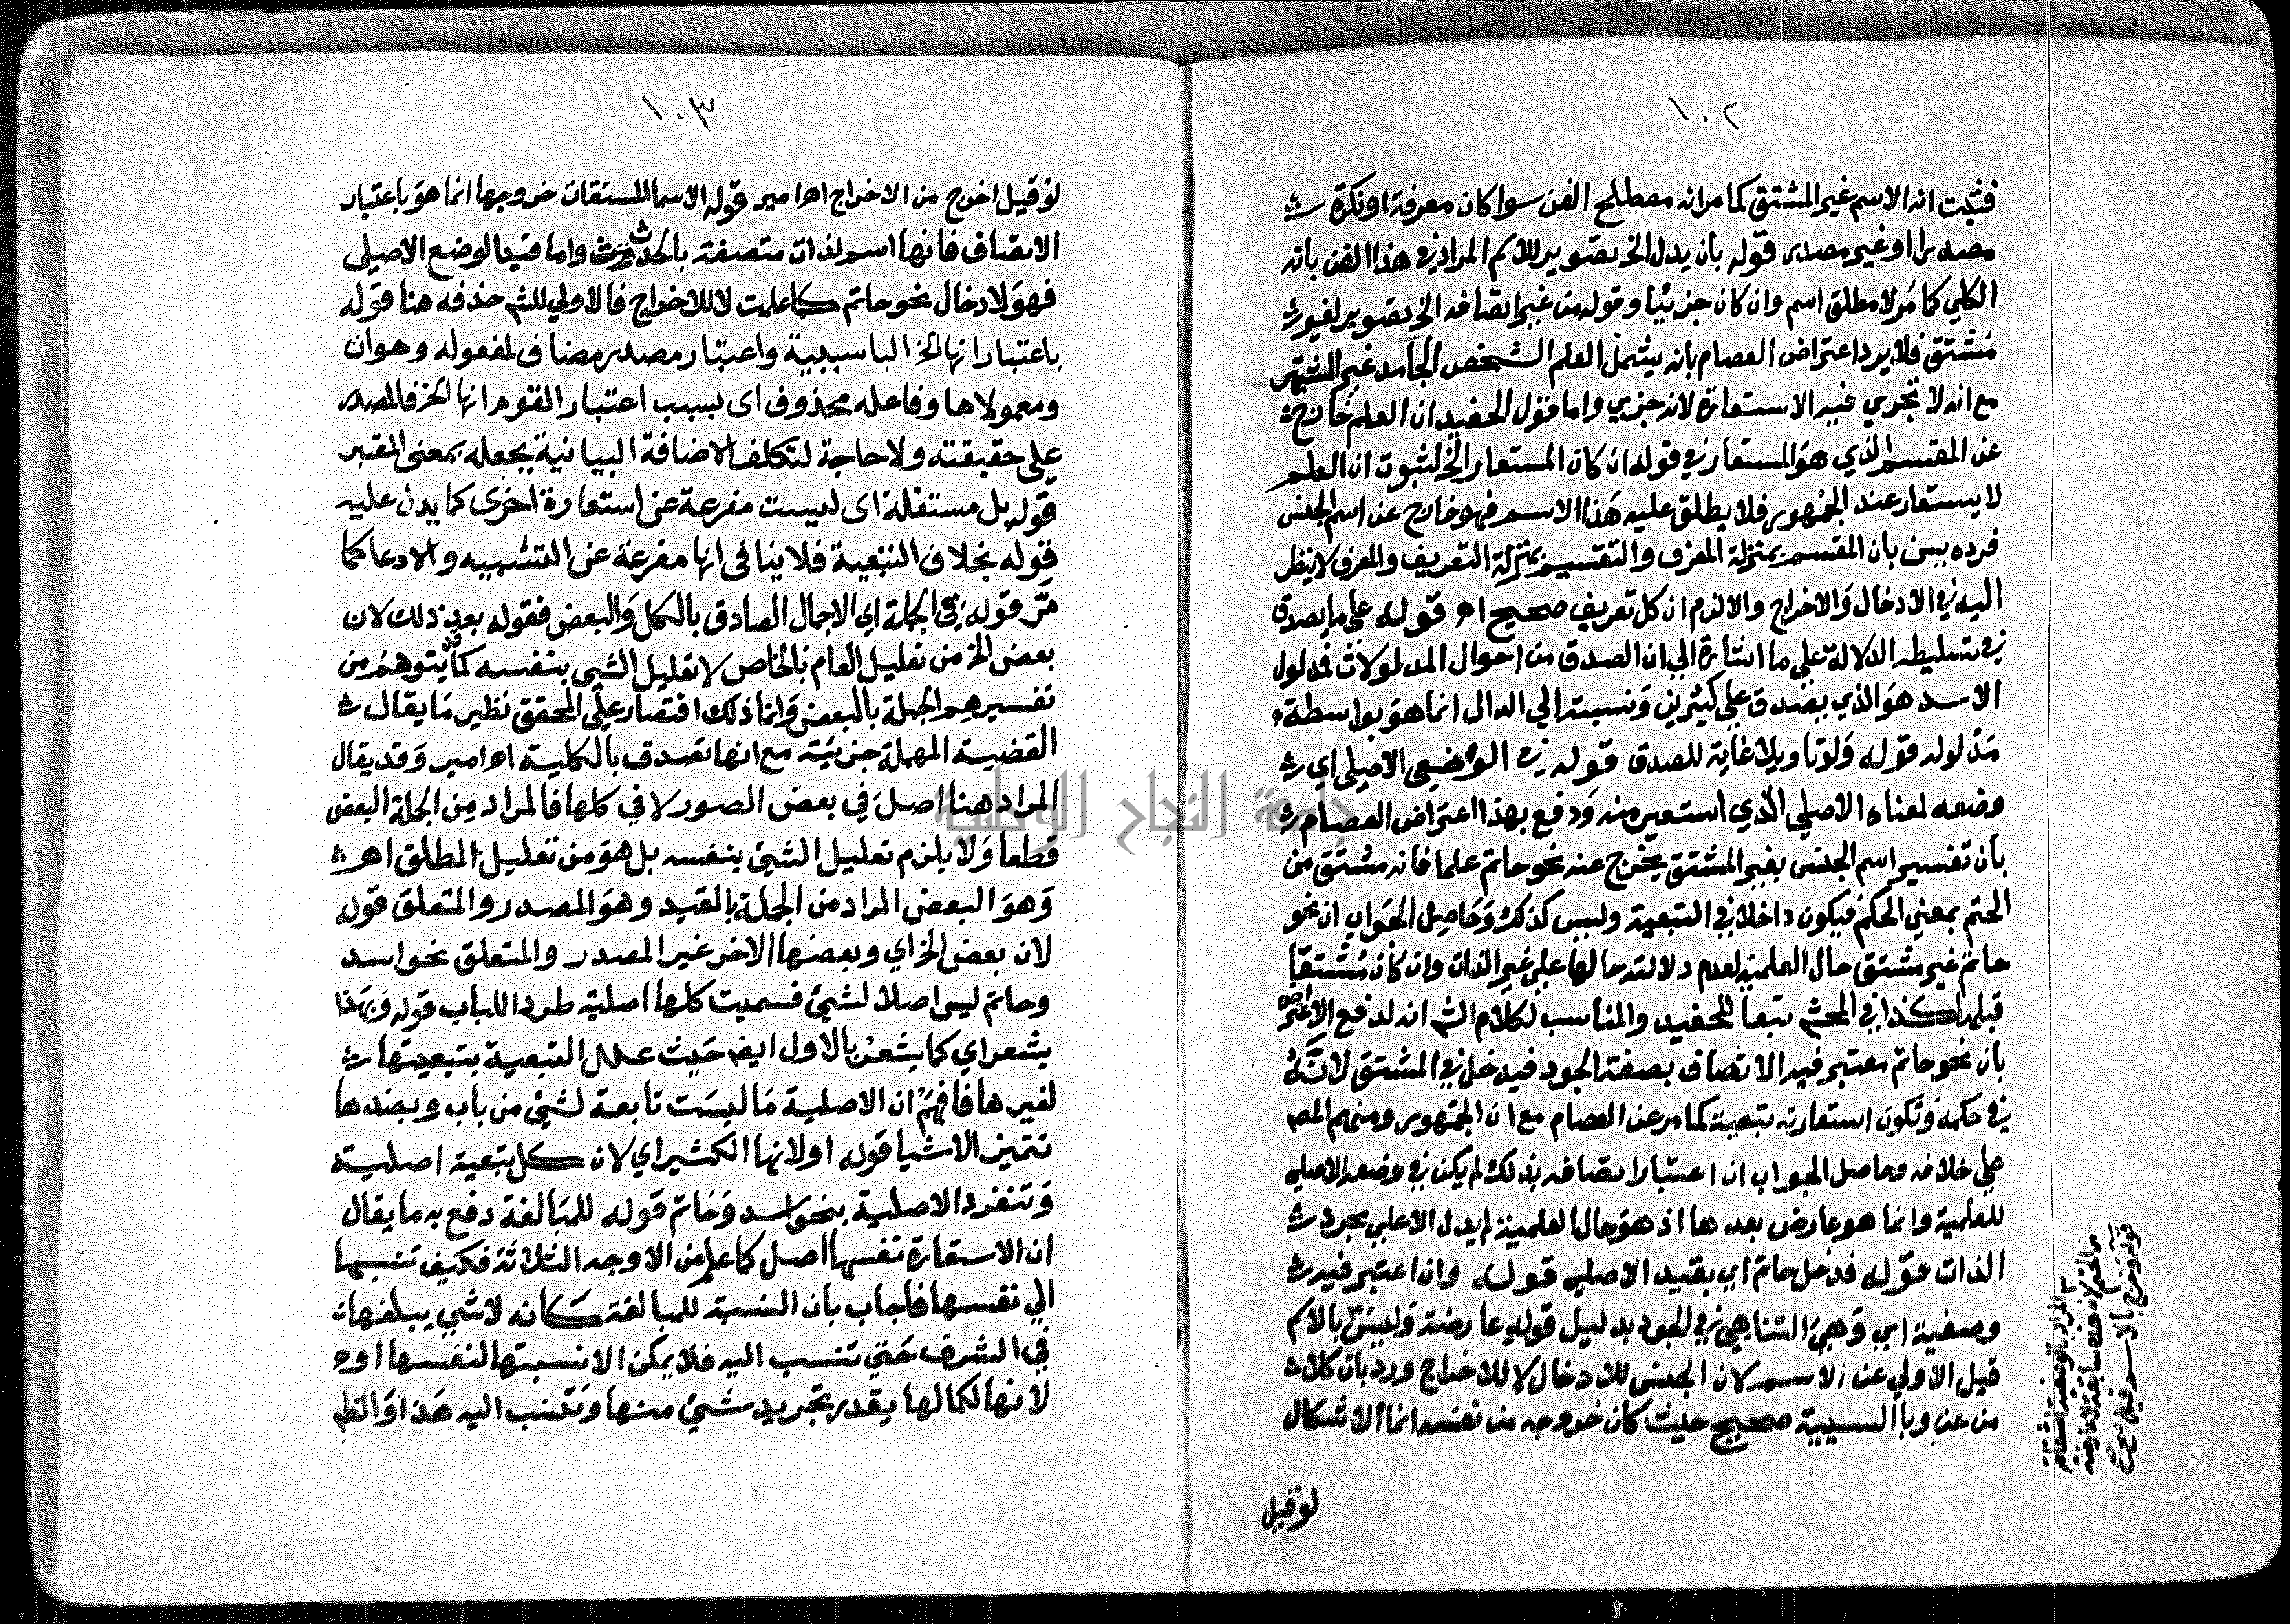 ١٠٢
فثبت انه الاسم غير المشتق كما مر انه مصطلح الفن سوا كان معرفة او نكرة
مصدرا او غير مصدر قوله بان يدل الخ تصوير للاسم المراد في هذا الفن بانه
الكلي كما مر لا مطلق اسم وان كان جزئيا وقوله من غير اتصافه الخ تصوير لغير
مشتق فلا يرد اعتراض العصام بانه يشمل العلم الشخص الجامد غير المشتهر
مع انه لا تجري فيه الاستعارة لانه جزيي واما فقول الحفيد ان العلم خارج
عن المقسم الذي هو المستعار في قوله ان كان المستعار الخ لثبوت ان العلم
لا يستعار عند الجمهور فلا يطلق عليه هذا الاسم فهو خارج عن اسم الجنس
فرده يس بان المقسم بمنزلة المعرف والتقسيم بمنزلة التعريف والمعرف لا ينظر
اليه في الادخال والاخراج والا لزم ان كل تعريف صحيح اه قوله على ما يصدق
في تسليطه الدلالة على ما اشارة الي ان الصدق من احوال المدلولات فمدلول
الاسد هو الذي يصدق علي كثيرين ونسبته الي الدال انما هو بواسطة
مدلوله قوله ولو تاويلا غاية للصدق قوله في الوضعي الاصلي اي
وضعه لمعناه الاصلي الذي استعير منه ودفع بهذا اعتراض العصام
بان تفسير اسم الجنس بغير المشتق يخرج عنه نحو حاتم علما فانه مشتق من
الحتم بمعني الحكم فيكون داخلا في التبعية وليس كذلك وحاصل الجواب ان نحو
حاتم غير مشتق حال العلمية لعدم دلالته حالها علي غير الذات وان كان مشتقا
قبلها كذا في المحشي تبعا للحفيد والمناسب لكلام الش انه لدفع الاعتراض
بان نحو حاتم معتبر فيه الاتصاف بصفة الجود فيدخل في المشتق لانه
في حكمه وتكون استعارته تبعية كما مر عن العصام مع ان الجمهور ومنهم المص
علي خلافه وحاصل الجواب ان اعتبار اتصافه بذلك لم يكن في وضعه الاصلي
للعلمية وانما هو عارض بعدها اذ هو حال العلمية لم يدل الا علي مجرد
الذات قوله فدخل حاتم اي بقيد الاصلي قوله وان اعتبر فيه
وصفية اي وهي التناهي في الجود بدليل قوله عارضة وليس بالاسم
قيل الاولي عن الاسم لان الجنس للادخال لا للاخراج ورد بان كلا
من عن وبا السببية صحيح حيث كان خروجه من نفسه انما الاشكال
لو قيل
١٠٣
لو قيل اخرج من الاخراج اه امير قوله الاسما المشتقات خروجها انما هو باعتبار
الاتصاف فانها اسم لذات متصفة بالحدث واما قيد الوضع الاصلي
فهو لادخال نحو حاتم كما علمت لا للاخراج فالاولي للش حذفه هنا قوله
باعتبار انها الخ البا سببية واعتبار مصدر مضاف لمفعوله وهو ان
ومعمولاها وفاعله محذوف اى بسبب اعتبار القوم انها الخ فالمصدر
على حقيقته ولا حاجة لتكلف الاضافة البيانية بجعله بمعنى المعتبر
قوله بل مستقلة اى ليست مفرعة عن استعارة اخرى كما يدل عليه
قوله بخلاف التبعية فلا ينافى انها مفرعة عن التشبيه والادعا كما
مر قوله في الجملة اي الاجمال الصادق بالكل والبعض فقوله بعد ذلك لان
بعض الخ من تعليل العام بالخاص لا تعليل الشي بنفسه كما قد يتوهم من
تفسيرهم الجملة بالبعض وانما ذلك اقتصار علي المحقق نظير ما يقال
القضية المهملة جزئية مع انها تصدق بالكلية اه امير وقد يقال
المراد هنا اصل في بعض الصور لا في كلها فالمراد من الجملة البعض
قطعا ولا يلزم تعليل الشئ بنفسه بل هو من تعليل المطلق اه
وهو البعض المراد من الجملة بالقيد وهو المصدر والمتعلق قوله
لان بعض الخ اي وبعضها الاخر غير المصدر والمتعلق نحو اسد
وحاتم ليس اصلا لشئ فسميت كلها اصلية طردا للباب قوله وبهذا
يشعر اي كما يشعر بالاول ايض حيث علل التبعية بتبعيتها
لغيرها فافهم ان الاصلية ما ليست تابعة لشئ من باب وبضدها
تتميز الاشيا قوله او لانها الكثير اي لان كل تبعية اصلية
وتنفرد الاصلية بنحو اسد وحاتم قوله للمبالغة دفع به ما يقال
ان الاستعارة نفسها اصل كما علم من الاوجه الثلاثة فكيف تنسبها
الي نفسها فاجاب بان النسبة للمبالغة كانه لا شي يبلغها
في الشرف حتي تنسب اليه فلا يمكن الا نسبتها لنفسها او
لانها لكمالها يقدر تجريد شئ منها وتنسب اليه هذا والظ
جامعة النجاح الوطنية